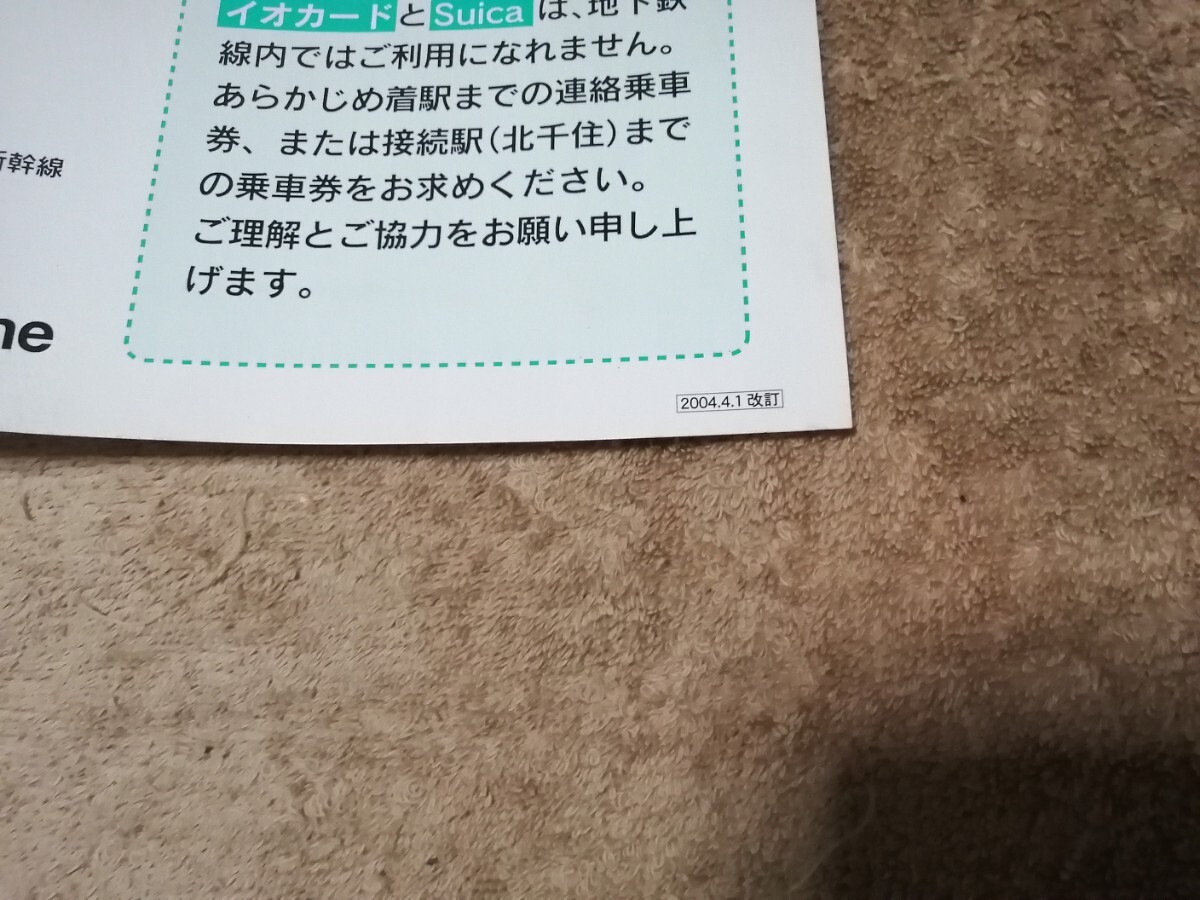 イオカードとSuicaは、地下鉄
線内ではご利用になれません。
あらかじめ着駅までの連絡乗車
券、または接続駅(北千住)まで
の乗車券をお求めください。
ご理解とご協力をお願い申し上
げます。
幹線
ne
2004.4.1 改訂